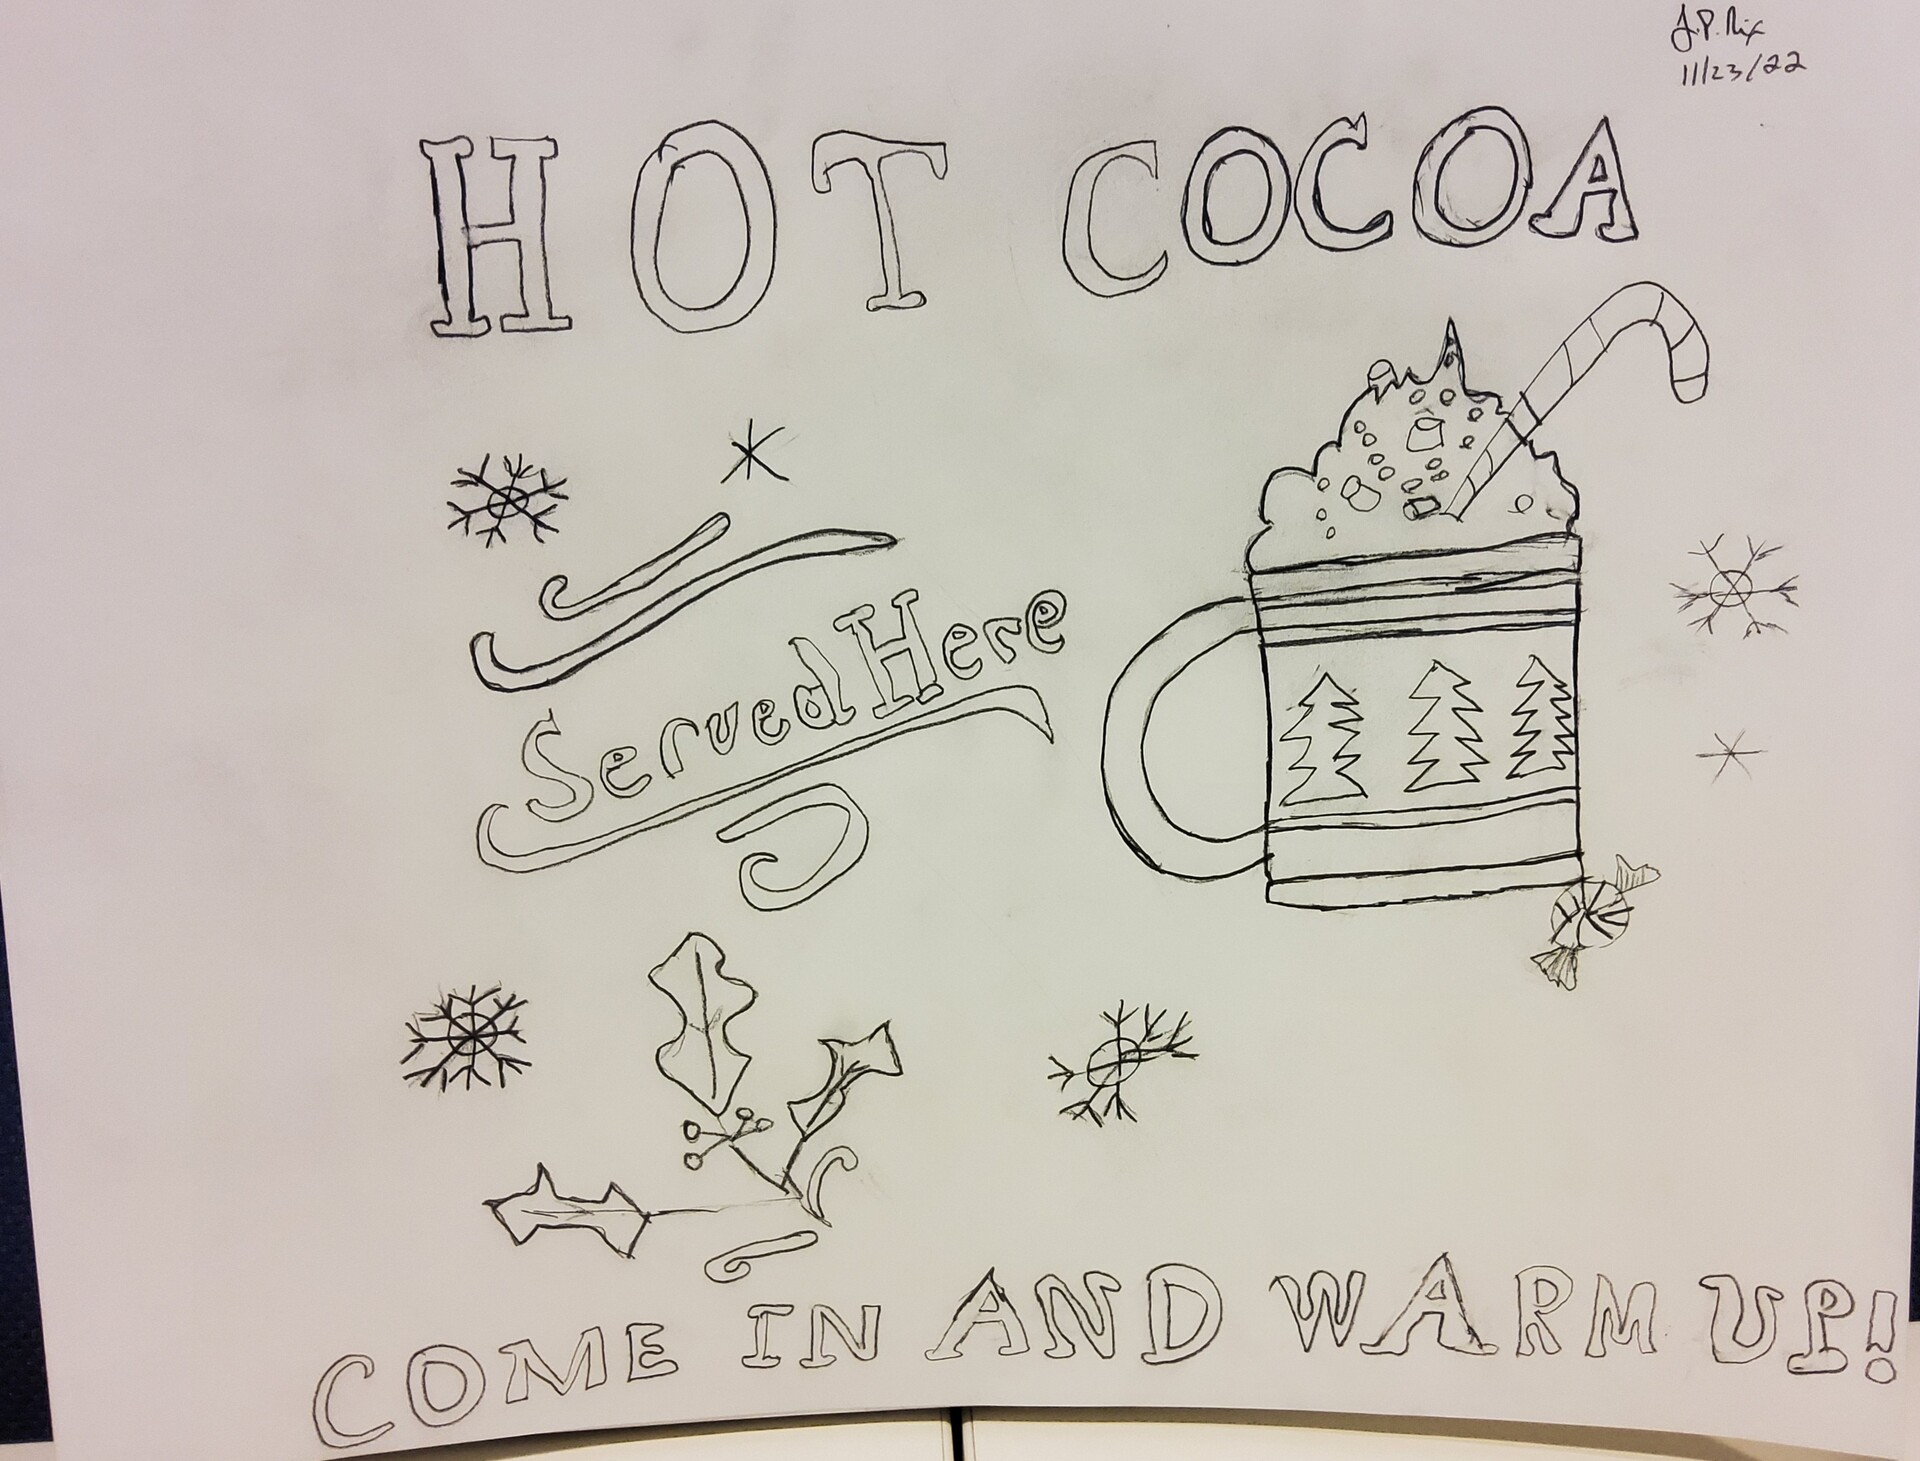 J.P. Nix
11/23/22
HOT COCOA
Served Here
COME IN AND WARM UP!